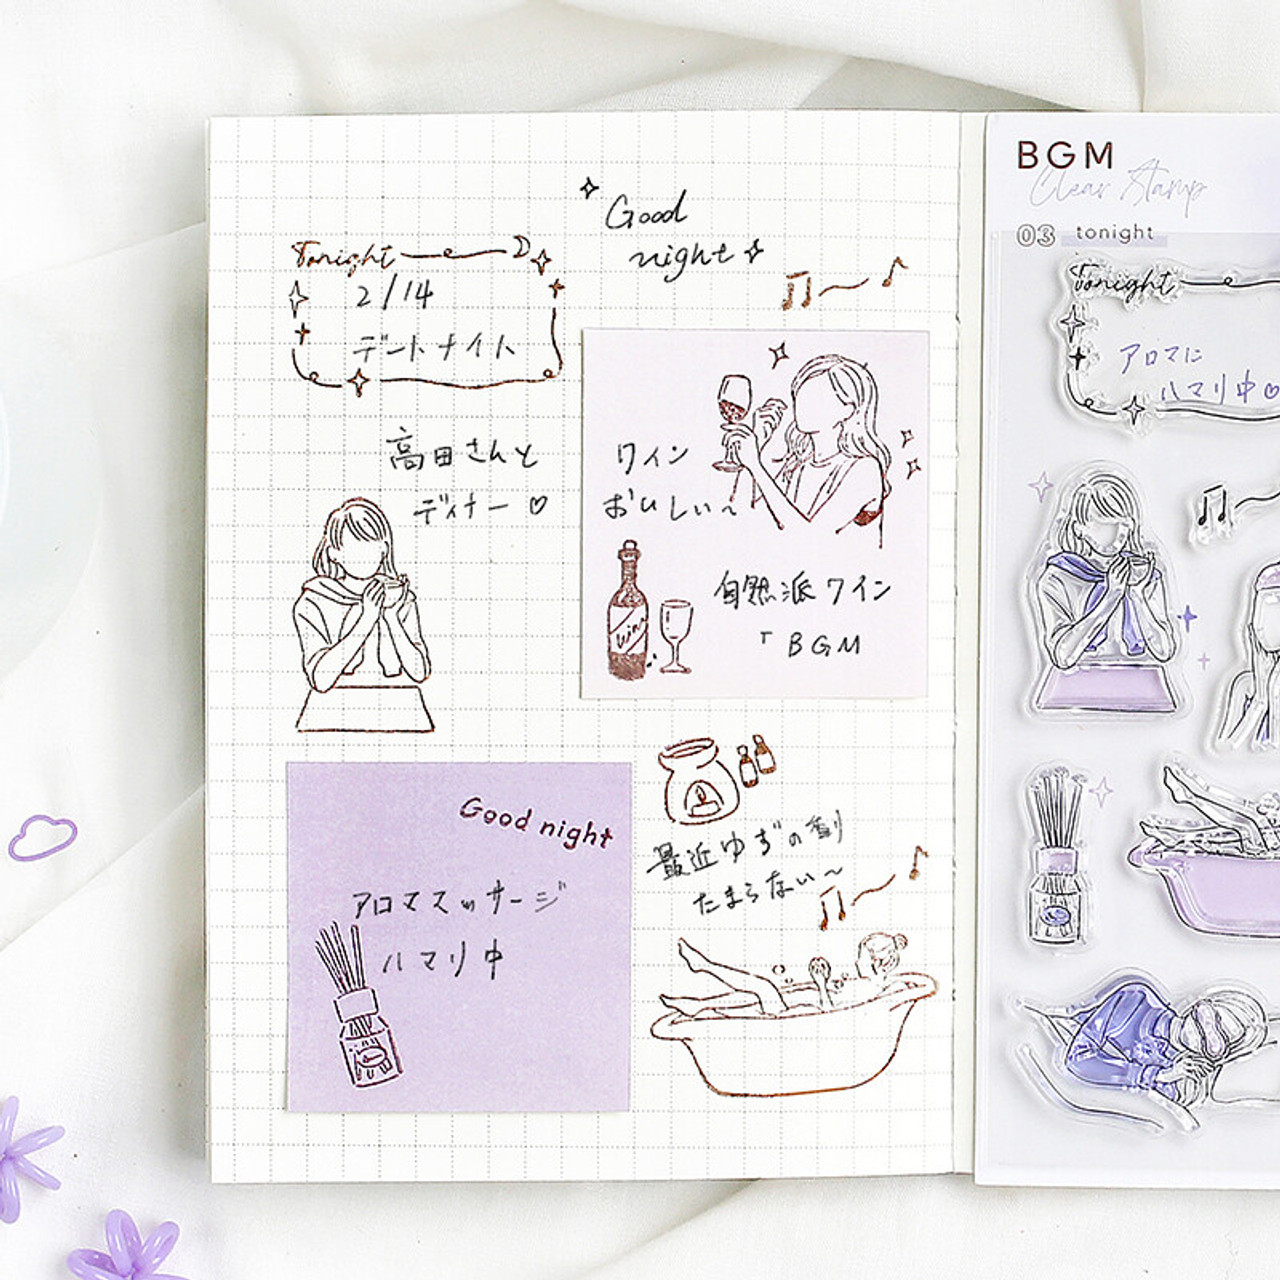 Good
night
Tonight
2/14
デートナイト
高田さんと
ディナー♡
ワイン
おいしい〜
Wine
自然派ワイン
「BGM
Good night
アロマスッサージ
ハマリ中
最近ゆずの香り
たまらない〜
BGM
Clear Stamp
03 tonight
Tonight
アロマに
ハマり中♡